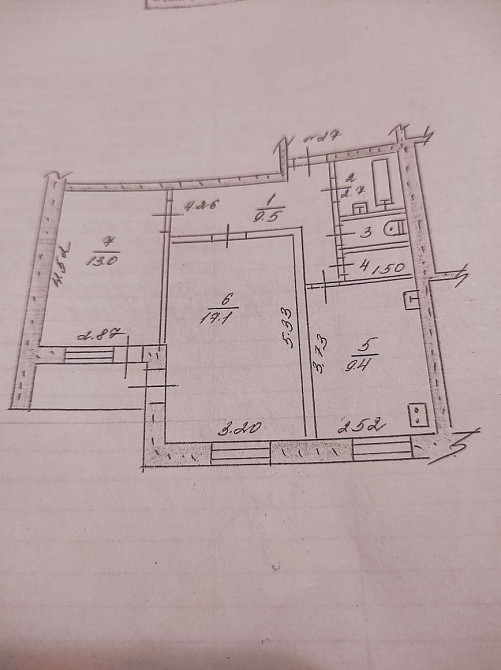 №27
1
9.5
2
2.7
3
4 1.50
4.26
7
13.0
4.52
2.87
6
17.1
5.33
3.20
5
9.4
3.73
2.52